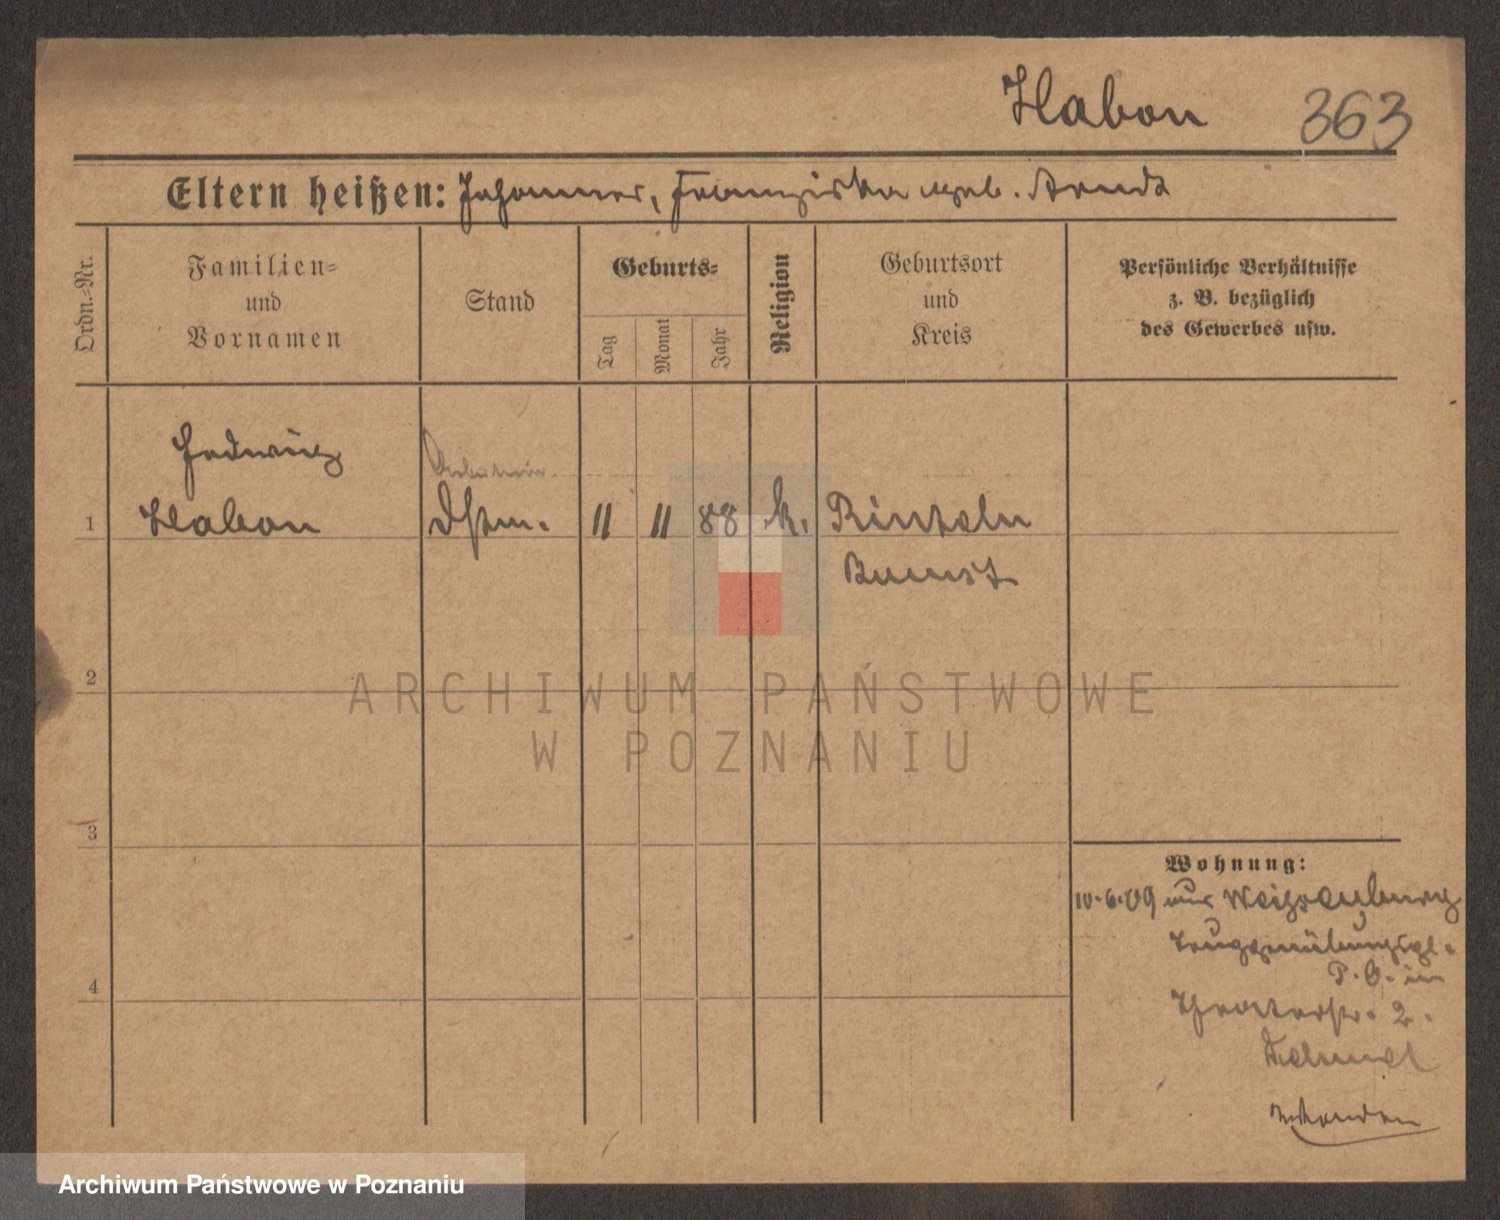 Habon 363
Eltern heißen: Johannes, Franziska geb. Arndt
Ordn.-Nr.
Familien-
und
Vornamen
Stand
Geburts-
Tag
Monat
Jahr
Religion
Geburtsort
und
Kreis
Persönliche Verhältnisse
z. B. bezüglich
des Gewerbes usw.
Hedwig
Arbeiterin
1 Habon Dstm. 11 11 88 k. Rinteln
Bumst
2
3
4
Wohnung:
10.6.09 aus Weißenburg
Truppenübungspl.
P.O. in
Theaterstr. 2.
ARCHIWUM PAŃSTWOWE
W POZNANIU
Archiwum Państwowe w Poznaniu